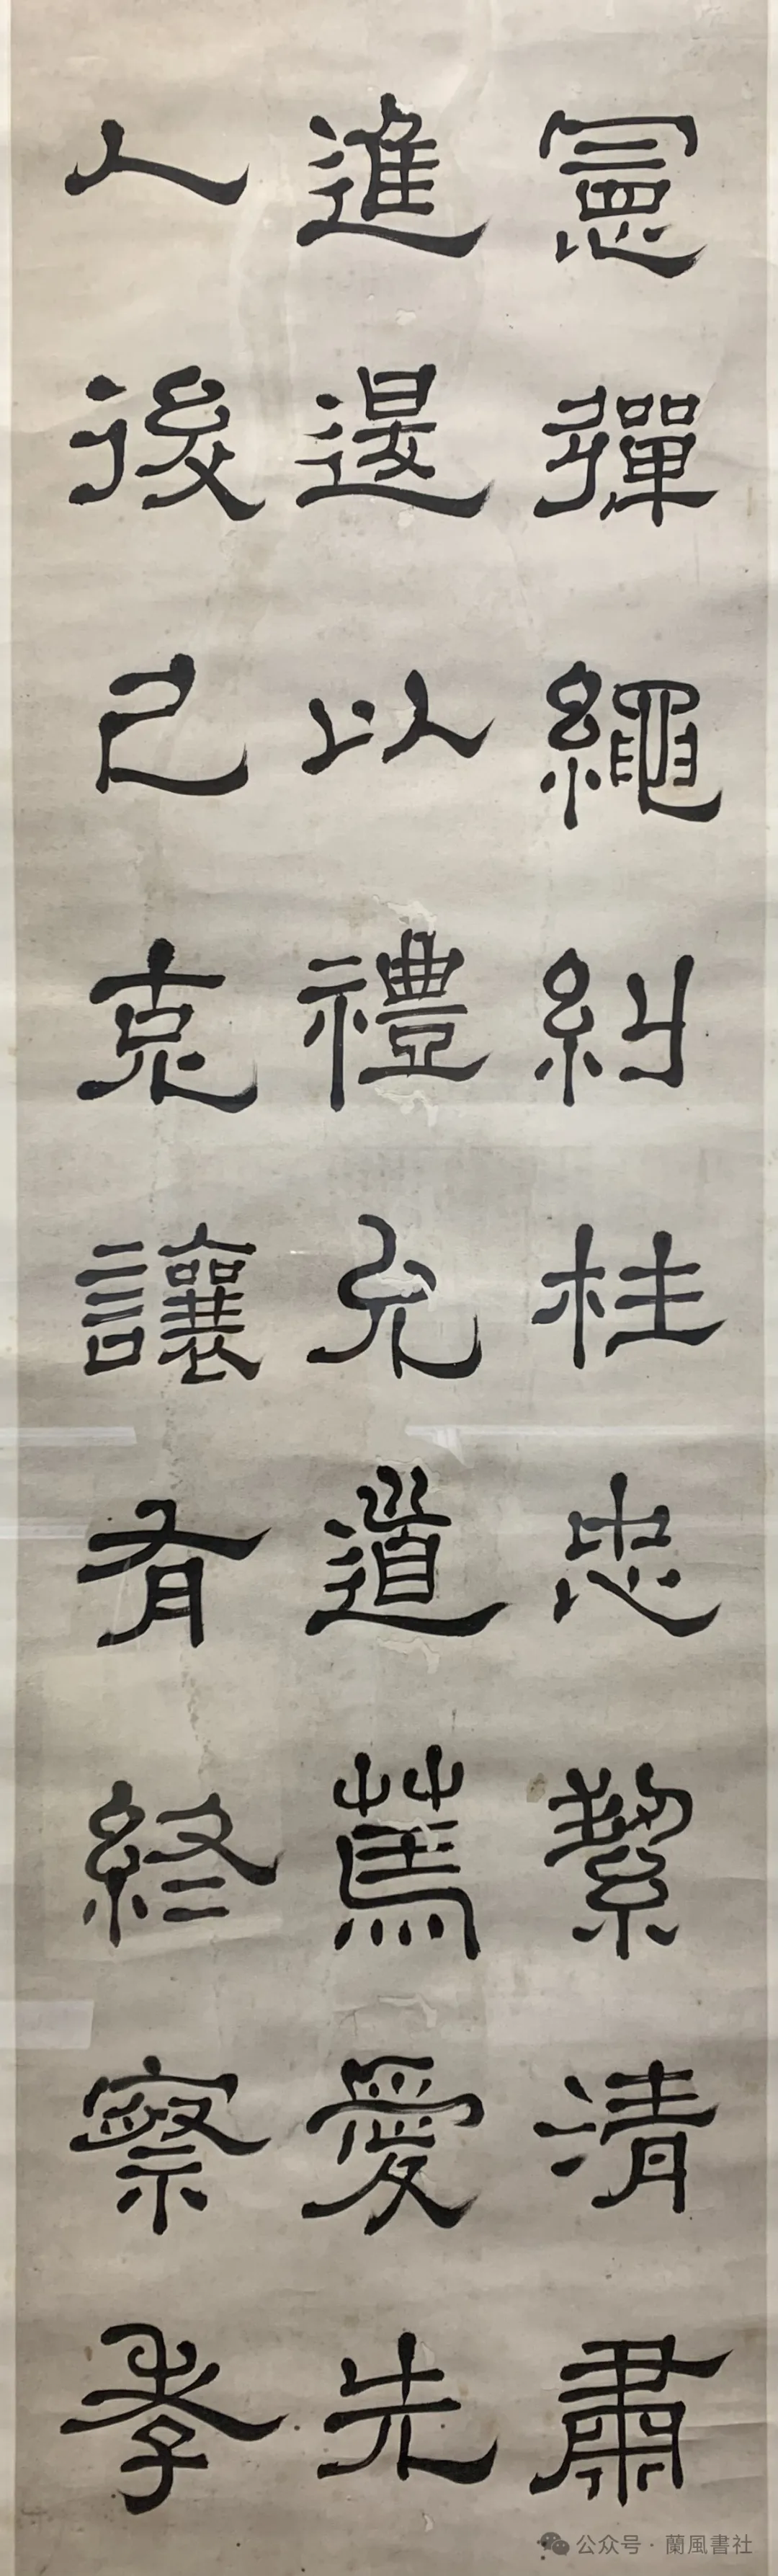 憲彈繩糾枉忠絜清肅
進退以禮允道篤愛先
人後己克讓有終察孝
公众号 · 蘭風書社